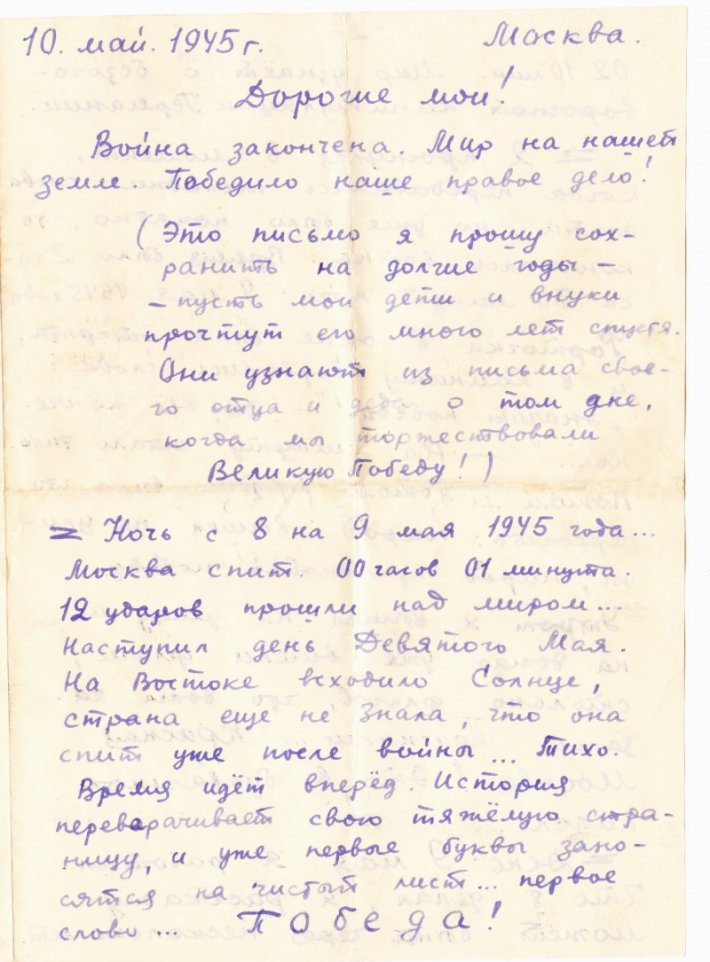 10. май. 1945 г. Москва.
Дорогие мои!
Война закончена. Мир на нашей
земле. Победило наше правое дело!
(Это письмо я прошу сох-
ранить на долгие годы –
– пусть мои дети и внуки
прочтут его много лет спустя.
Они узнают из письма свое-
го отца и деда о том дне,
когда мы торжествовали
Великую Победу!)
= Ночь с 8 на 9 мая 1945 года...
Москва спит. 00 часов 01 минута.
12 ударов прошли над миром...
Наступил день Девятого Мая.
На Востоке всходило Солнце,
страна еще не знала, что она
спит уже после войны... Тихо.
Время идёт вперёд. История
переворачивает свою тяжёлую стра-
ницу, и уже первые буквы зано-
сятся на чистый лист... первое
слово... Победа!